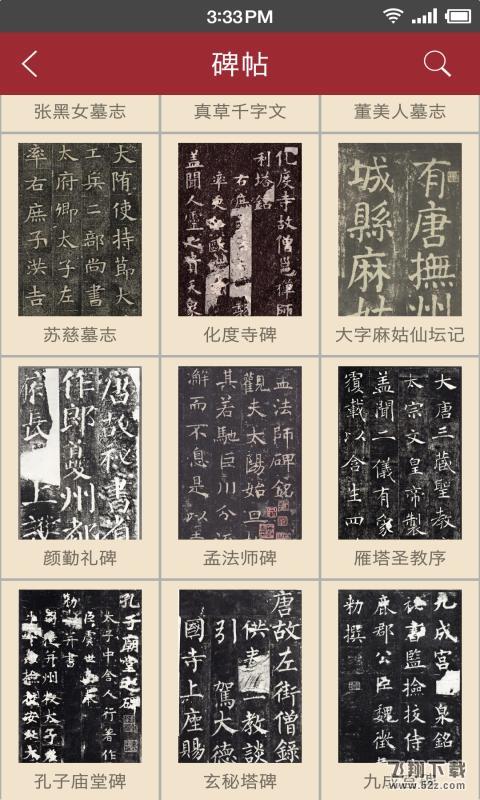 3:33PM
碑帖
张黑女墓志
真草千字文
董美人墓志
大隋使持節大
工兵二部尚書
太府卿太子左
率右庶子洪吉
苏慈墓志
化度寺故僧邕禅師
利塔銘
右庶
率更
蓋聞人靈之貴天象
化度寺碑
有唐撫州
城縣麻姑
大字麻姑仙坛记
唐故秘書省
作郎夔州都
長
颜勤礼碑
孟法師碑銘
觀夫太陽始旦
其若馳巨川分
解而不息是以
孟法师碑
大唐三藏聖教
太宗文皇帝製
蓋聞二儀有象
覆載以含生四
雁塔圣教序
孔子廟堂之碑
太子中舍人行著作
臣虞世
勑并書
孔子庙堂碑
唐故左街僧録
供奉三教談
引駕大德
國寺上座賜
玄秘塔碑
九成宫
泉銘
祕書監撿挍侍
鹿郡公臣魏徵
勑撰
九成宫
飞翔下载
www.52z.com